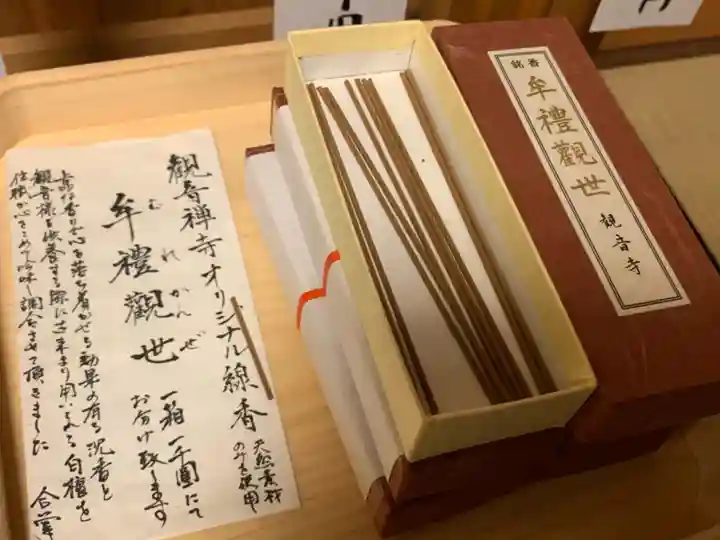 観音禅寺オリジナル線香
天然素材
のみを使用
牟禮觀世
むれかんぜ
一箱一千圓にて
お分け致します
上品な香りで心を落ち着かせる効果の有る沈香と
観音様を供養する際に古来より用いる白檀を
住職が心をこめて吟味調合させて頂きました 合掌
銘香
牟禮觀世
観音寺
円